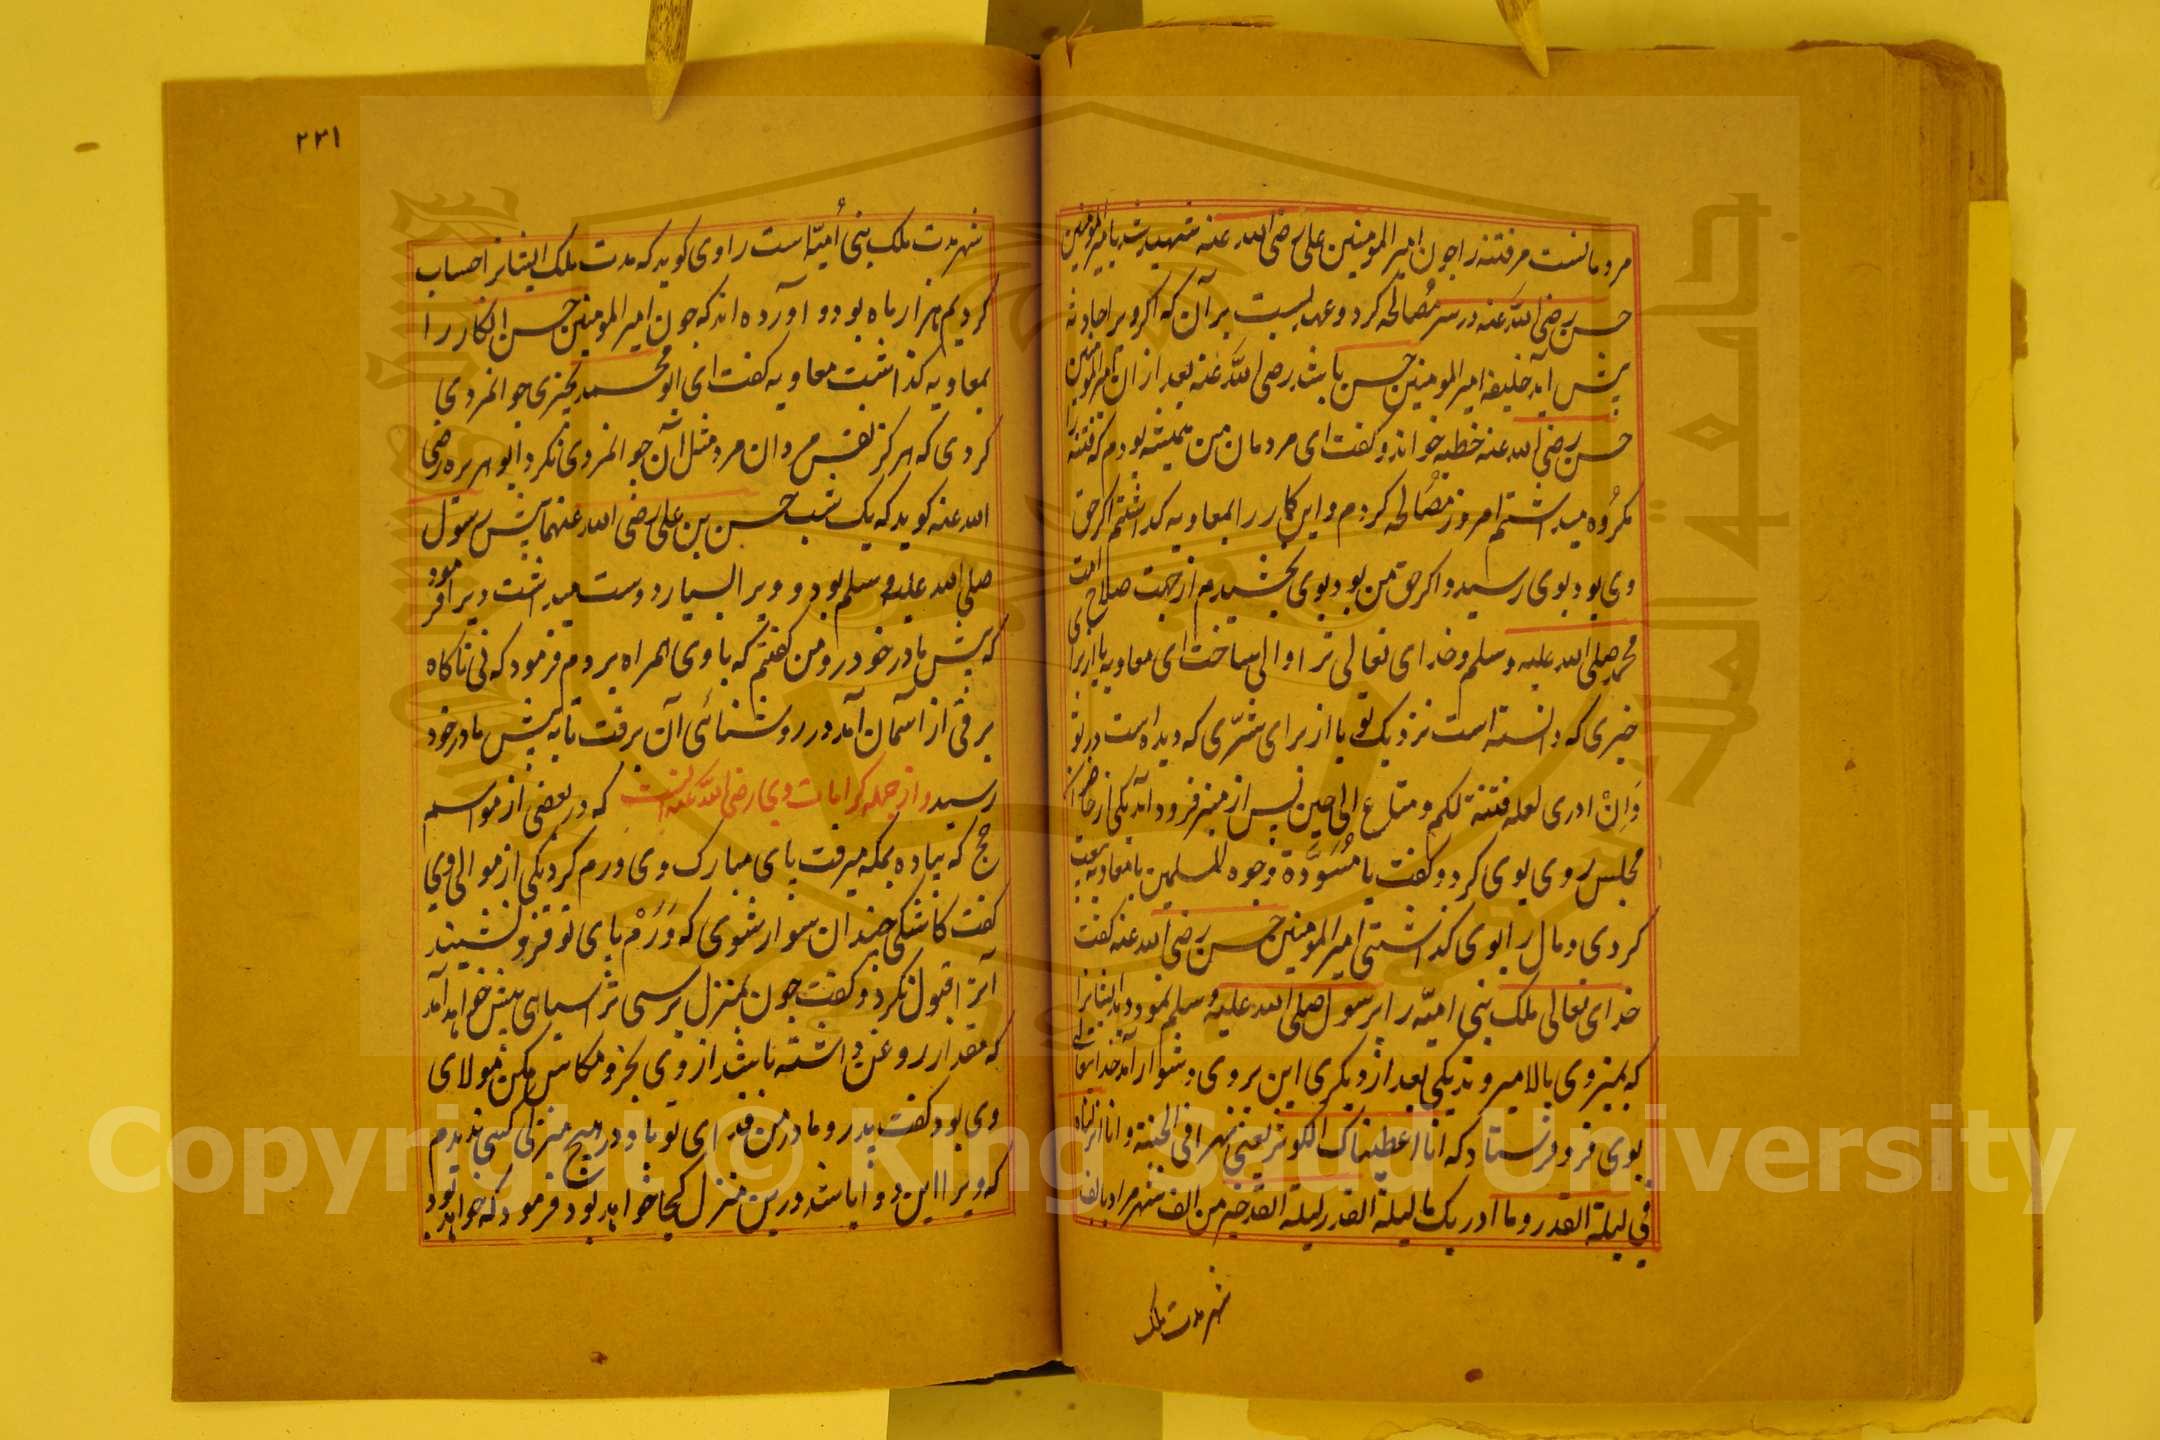 مردمانست مر فتنه را چون امیر المومنین علی رضی الله عنه شهید شد با امیر المومنین
حسن رضی الله عنه در سر مُصالحه کرد و عهد بست بر آن که اگر ویرا حادثهٔ
پیش آید خلیفه امیر المومنین حسن باشد رضی الله عنه بعد از ان امیر المومنین
حسن رضی الله عنه خطبه خواند و کفت ای مردمان من همیشه بودم که فتنه را
مکرُوه میداشتم امروز مصُالحه کردم و این کار را بمعاویه کذاشتم اکر حق
وی بود بوی رسید و اکر حق من بود بوی بخشیدم از جهت صلاح امت
محمد صلی الله علیه وسلم و خدای تعالی ترا والی ساخت ای معاویه یا از برای
خیری که دانسته است نزدیک تو یا از برای شرّی که دیده است در تو
وَاِنْ ادری لعله فتنة لکم و متاع الی حین پس از منبر فرود آمد یکی از حاضران
مجلس روی بوی کرد و کفت یا مُسَوِّدة وجوه المسلمین با معاویه بیعت
کردی و مال را بوی کذاشتی امیر المومنین حسن رضی الله عنه کفت
خدای تعالی ملک بنی امیّه را برسول صلی الله علیه وسلم نمود دید ایشانرا
که بمنبر وی بالا میروند یکی بعد از دیکری این بر وی دشوار آمد خدایتعالی
بوی فرو فرستاد که انا اعطیناک الکوثر یعنی نهرا فی الجنة و انا انزلناه
فی لیلة القدر وما ادریک ما لیلة القدر لیلة القدر خیر من الف شهر مراد بالف
شهر مدت ملک
٢٣١
شهر مدت ملک بنی اُمیّه است راوی کوید که مدت ملک ایشانرا حساب
کردیم هزار ماه بود و آورده اند که چون امیر المومنین حسن انکار را
بمعاویه کذاشت معاویه کفت ای ابو محمد بخیزی جوانمردی
کردی که هرکز نفس مردان مرد مثل آن جوانمردی نکرد ابو هریره رضی
الله عنه کوید که یک شب حسن بن علی رضی الله عنهما پیش رسول
صلی الله علیه وسلم بود و ویرا بسیار دوست میداشت ویرا فرمود
که پیش مادر خود رو من کفتم که با وی همراه بروم فرمود که نی ناکاه
برقی از آسمان آمد در روشنائی آن برفت تا به پیش مادر خود
رسید و از جمله کرامات وی رضی الله عنه آنست که در بعضی از مواسم
حج که پیاده بمکه میرفت پای مبارک وی ورم کرد یکی از موالی وی
کفت کاشکی چندان سوار شوی که وَرَمْ پای تو فرو نشیند
آنرا قبول نکرد و کفت چون بمنزل برسی ترا سیاهی پیش خواهد آمد
که مقدار روغن داشته باشد از وی بخر و مکاس مکن مولای
وی بود کفت پدر و مادر من فدای تو باد در هیچ منزلی کسی ندیدم
که ویرا این دوا باشد درین منزل کجا خواهد بود فرمود که خواهد بود